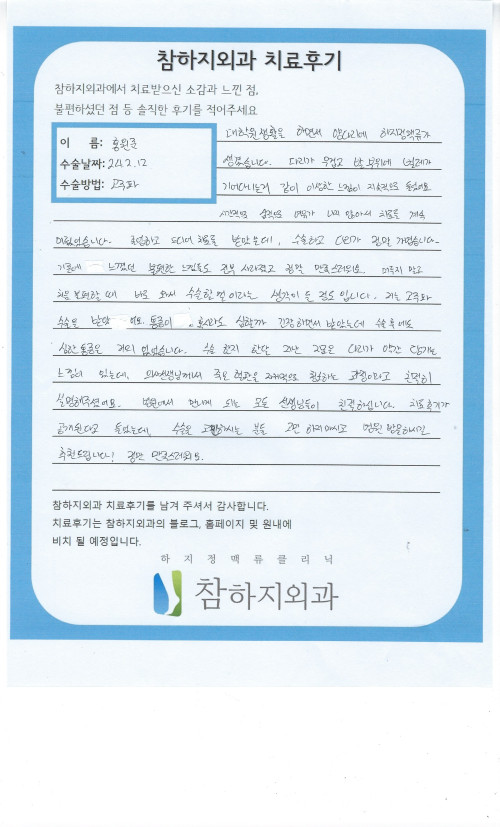 참하지외과 치료후기
참하지외과에서 치료받으신 소감과 느낀 점,
불편하셨던 점 등 솔직한 후기를 적어주세요
이 름: 홍원준
수술날짜: 24.2.12
수술방법: 고주파
대학원 생활을 하면서 양다리에 하지정맥류가
생겼습니다. 다리가 무겁고 발 부위에 벌레가
기어다니는거 같이 이상한 느낌이 지속적으로 들었어요.
시간적으로 심적으로 여유가 나지 않아서 치료를 계속
미뤘었습니다. 졸업하고 드디어 치료를 받았는데, 수술하고 다리가 정말 가볍습니다.
기존에 느꼈던 불편한 느낌들도 전부 사라졌고 정말 만족스러워요. 미루지 말고
처음 불편할 때 바로 와서 수술할 껄 이라는 생각이 들 정도 입니다. 저는 고주파
수술을 받았 어요. 통증이 혹시라도 심할까 긴장하면서 받았는데 수술 후에도
심한 통증은 거의 없었습니다. 수술 한지 한달 지난 지금은 다리가 약간 당기는
느낌이 있는데, 의사선생님께서 죽은 혈관을 자체적으로 흡수하는 과정이라고 친절히
설명해주셨어요. 병원에서 만나게 되는 모든 선생님들이 친절하십니다. 치료후기가
공개된다고 들었는데, 수술을 고민하시는 분들 고민 하지마시고 병원 방문하시길
추천드립니다! 정말 만족스러워요.
참하지외과 치료후기를 남겨 주셔서 감사합니다.
치료후기는 참하지외과의 블로그, 홈페이지 및 원내에
비치 될 예정입니다.
하지정맥류클리닉
참하지외과